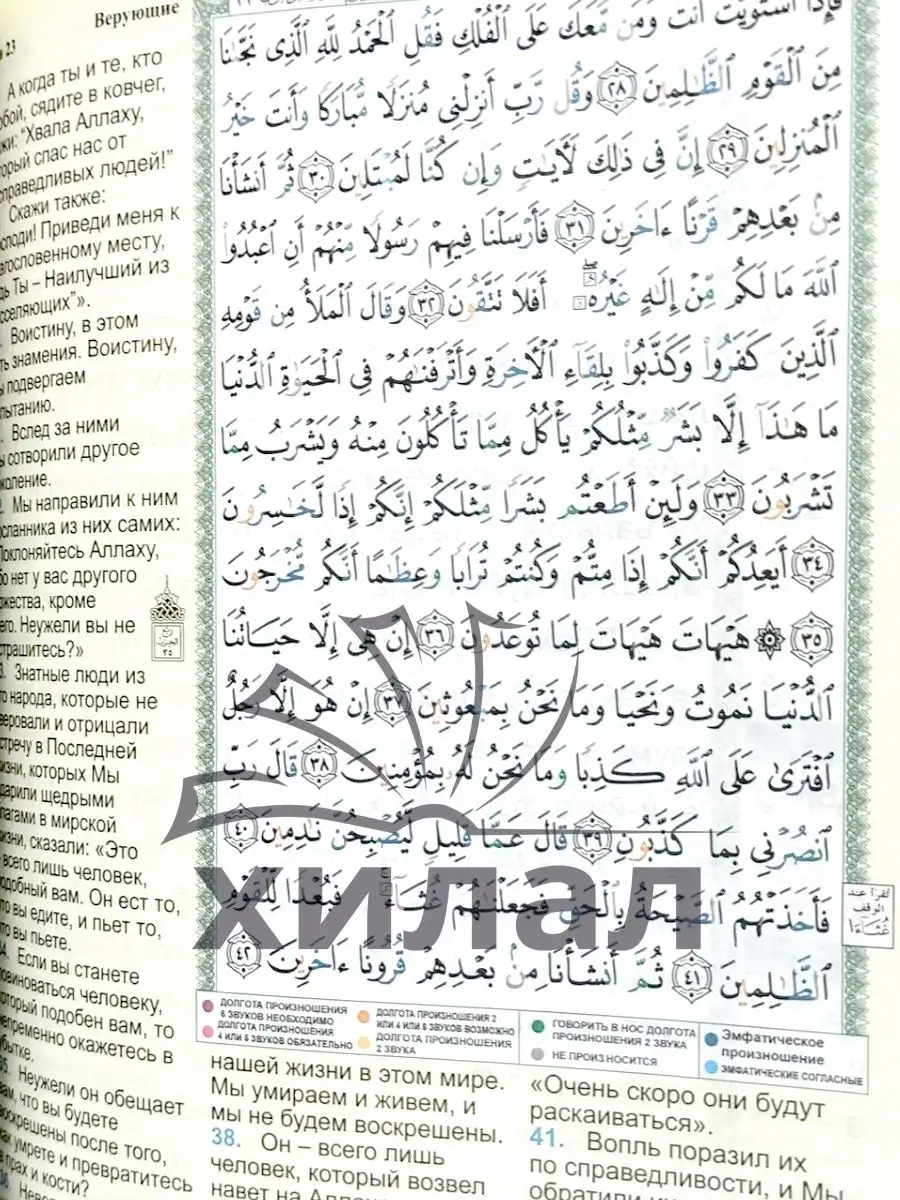 Верующие
23
А когда ты и те, кто
сядите в ковчег,
“Хвала Аллаху,
спас нас от
людей!”
Скажи также:
Приведи меня к
месту,
Ты – Наилучший из
Воистину, в этом
знамения. Воистину,
подвергаем
Вслед за ними
сотворили другое
Мы направили к ним
из них самих:
Аллаху,
нет у вас другого
кроме
Неужели вы не
Знатные люди из
народа, которые не
и отрицали
в Последней
которых Мы
щедрыми
в мирской
сказали: «Это
всего лишь человек,
вам. Он ест то,
вы едите, и пьет то,
вы пьете.
Если вы станете
человеку,
подобен вам, то
окажетесь в
Неужели он обещает
что вы будете
после того,
умрете и превратитесь
прах и кости?
فَإِذَا ٱسْتَوَيْتَ أَنتَ وَمَن مَّعَكَ عَلَى ٱلْفُلْكِ فَقُلِ ٱلْحَمْدُ لِلَّهِ ٱلَّذِى نَجَّىٰنَا
مِنَ ٱلْقَوْمِ ٱلظَّٰلِمِينَ ٢٨ وَقُل رَّبِّ أَنزِلْنِى مُنزَلًا مُّبَارَكًا وَأَنتَ خَيْرُ
ٱلْمُنزِلِينَ ٢٩ إِنَّ فِى ذَٰلِكَ لَـَٔايَٰتٍ وَإِن كُنَّا لَمُبْتَلِينَ ٣٠ ثُمَّ أَنشَأْنَا
مِنۢ بَعْدِهِمْ قَرْنًا ءَاخَرِينَ ٣١ فَأَرْسَلْنَا فِيهِمْ رَسُولًا مِّنْهُمْ أَنِ ٱعْبُدُوا۟
ٱللَّهَ مَا لَكُم مِّنْ إِلَٰهٍ غَيْرُهُۥٓ أَفَلَا تَتَّقُونَ ٣٢ وَقَالَ ٱلْمَلَأُ مِن قَوْمِهِ
ٱلَّذِينَ كَفَرُوا۟ وَكَذَّبُوا۟ بِلِقَآءِ ٱلْـَٔاخِرَةِ وَأَتْرَفْنَٰهُمْ فِى ٱلْحَيَوٰةِ ٱلدُّنْيَا
مَا هَٰذَآ إِلَّا بَشَرٌ مِّثْلُكُمْ يَأْكُلُ مِمَّا تَأْكُلُونَ مِنْهُ وَيَشْرَبُ مِمَّا
تَشْرَبُونَ ٣٣ وَلَئِنْ أَطَعْتُم بَشَرًا مِّثْلَكُمْ إِنَّكُمْ إِذًا لَّخَٰسِرُونَ
٣٤ أَيَعِدُكُمْ أَنَّكُمْ إِذَا مِتُّمْ وَكُنتُمْ تُرَابًا وَعِظَٰمًا أَنَّكُم مُّخْرَجُونَ
٣٥ هَيْهَاتَ هَيْهَاتَ لِمَا تُوعَدُونَ ٣٦ إِنْ هِىَ إِلَّا حَيَاتُنَا
ٱلدُّنْيَا نَمُوتُ وَنَحْيَا وَمَا نَحْنُ بِمَبْعُوثِينَ ٣٧ إِنْ هُوَ إِلَّا رَجُلٌ
ٱفْتَرَىٰ عَلَى ٱللَّهِ كَذِبًا وَمَا نَحْنُ لَهُۥ بِمُؤْمِنِينَ ٣٨ قَالَ رَبِّ
ٱنصُرْنِى بِمَا كَذَّبُونِ ٣٩ قَالَ عَمَّا قَلِيلٍ لَّيُصْبِحُنَّ نَٰدِمِينَ ٤٠
فَأَخَذَتْهُمُ ٱلصَّيْحَةُ بِٱلْحَقِّ فَجَعَلْنَٰهُمْ غُثَآءً فَبُعْدًا لِّلْقَوْمِ
ٱلظَّٰلِمِينَ ٤١ ثُمَّ أَنشَأْنَا مِنۢ بَعْدِهِمْ قُرُونًا ءَاخَرِينَ ٤٢
تقرأ عند
الوقف
غُثَآءَا
хилал
ДОЛГОТА ПРОИЗНОШЕНИЯ
6 ЗВУКОВ НЕОБХОДИМО
ДОЛГОТА ПРОИЗНОШЕНИЯ
4 ИЛИ 5 ЗВУКОВ ОБЯЗАТЕЛЬНО
ДОЛГОТА ПРОИЗНОШЕНИЯ 2
ИЛИ 4 ИЛИ 6 ЗВУКОВ ВОЗМОЖНО
ДОЛГОТА ПРОИЗНОШЕНИЯ
2 ЗВУКА
ГОВОРИТЬ В НОС ДОЛГОТА
ПРОИЗНОШЕНИЯ 2 ЗВУКА
НЕ ПРОИЗНОСИТСЯ
Эмфатическое
произношение
ЭМФАТИЧЕСКИЕ СОГЛАСНЫЕ
нашей жизни в этом мире.
Мы умираем и живем, и
мы не будем воскрешены.
38. Он – всего лишь
человек, который возвел
навет на
«Очень скоро они будут
раскаиваться».
41. Вопль поразил их
по справедливости, и Мы
обратили